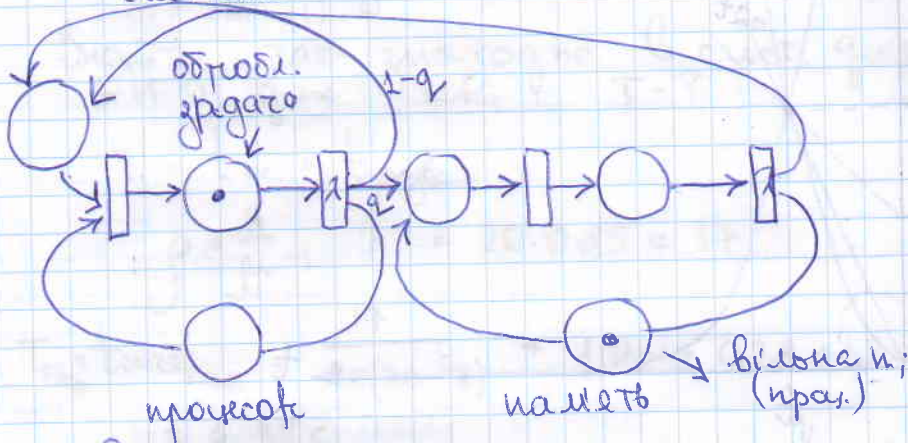 обробл.
задача
1-q
λ
q
λ
процесор
память
вільна п;
(прац.)